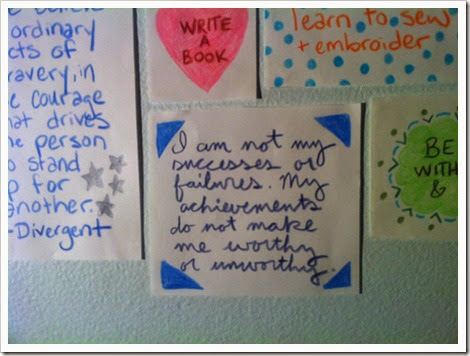 ordinary
acts of
bravery, in
the courage
that drives
one person
to stand
up for
another.
-Divergent
WRITE
A
BOOK
learn to sew
+ embroider
I am not my
successes or
failures. My
achievements
do not make
me worthy
or unworthy.
BE
WITH
&